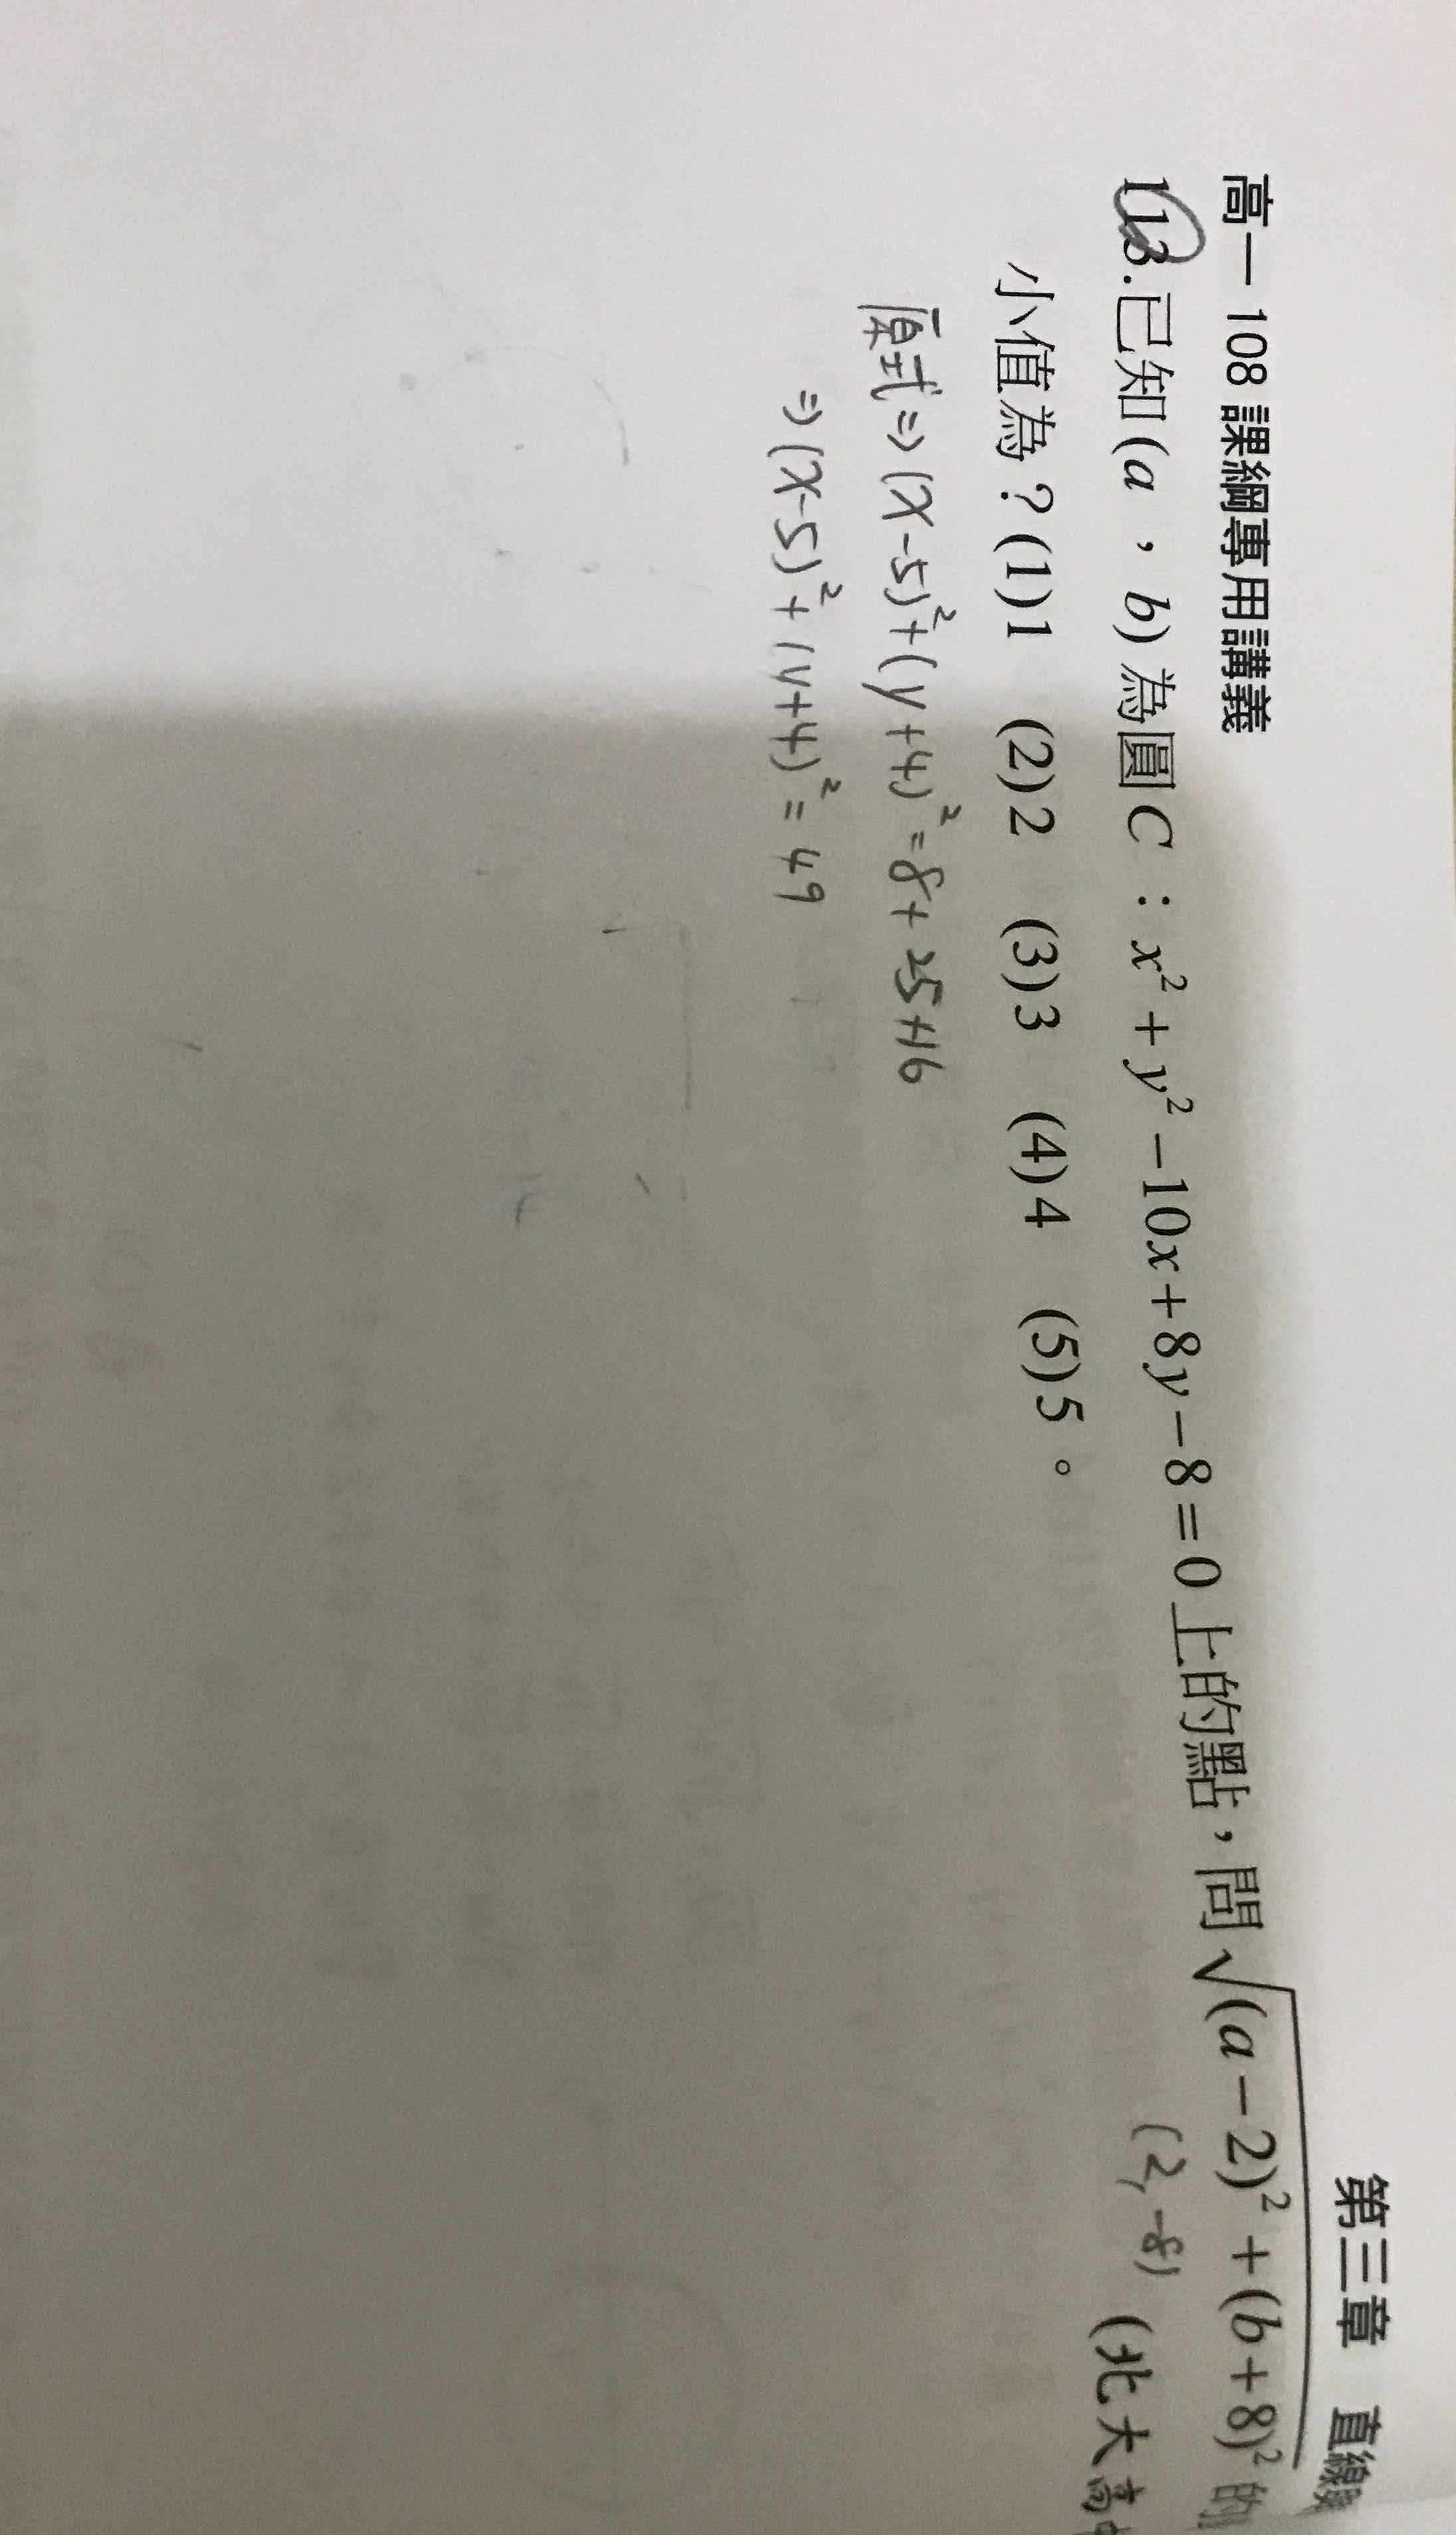 高一 108 課綱專用講義
第三章 直線
113.已知(a,b)為圓C:x²+y²−10x+8y−8=0上的點,問√(a−2)²+(b+8)²的
(2,-8)
小值為?(1)1 (2)2 (3)3 (4)4 (5)5。
(北大高中
原式⇒(x-5)²+(y+4)²=8+25+16
⇒(x-5)²+(y+4)²=49